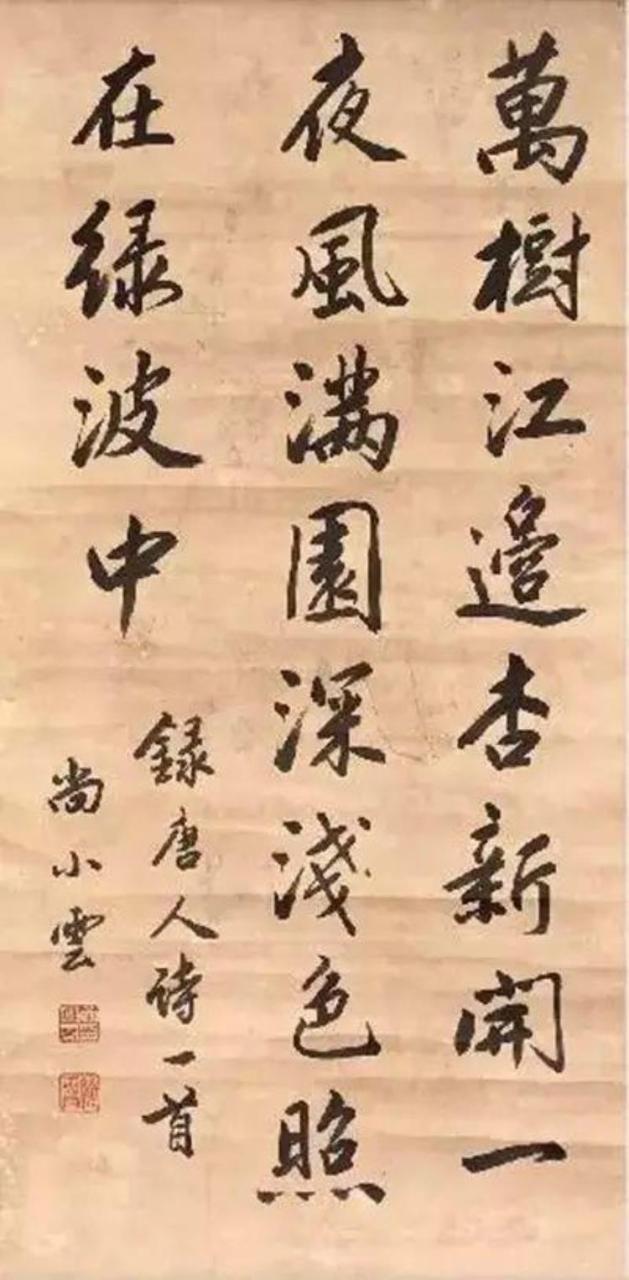 萬樹江邊杏新開一
夜風滿園深淺色照
在緑波中
録唐人詩一首
尚小雲